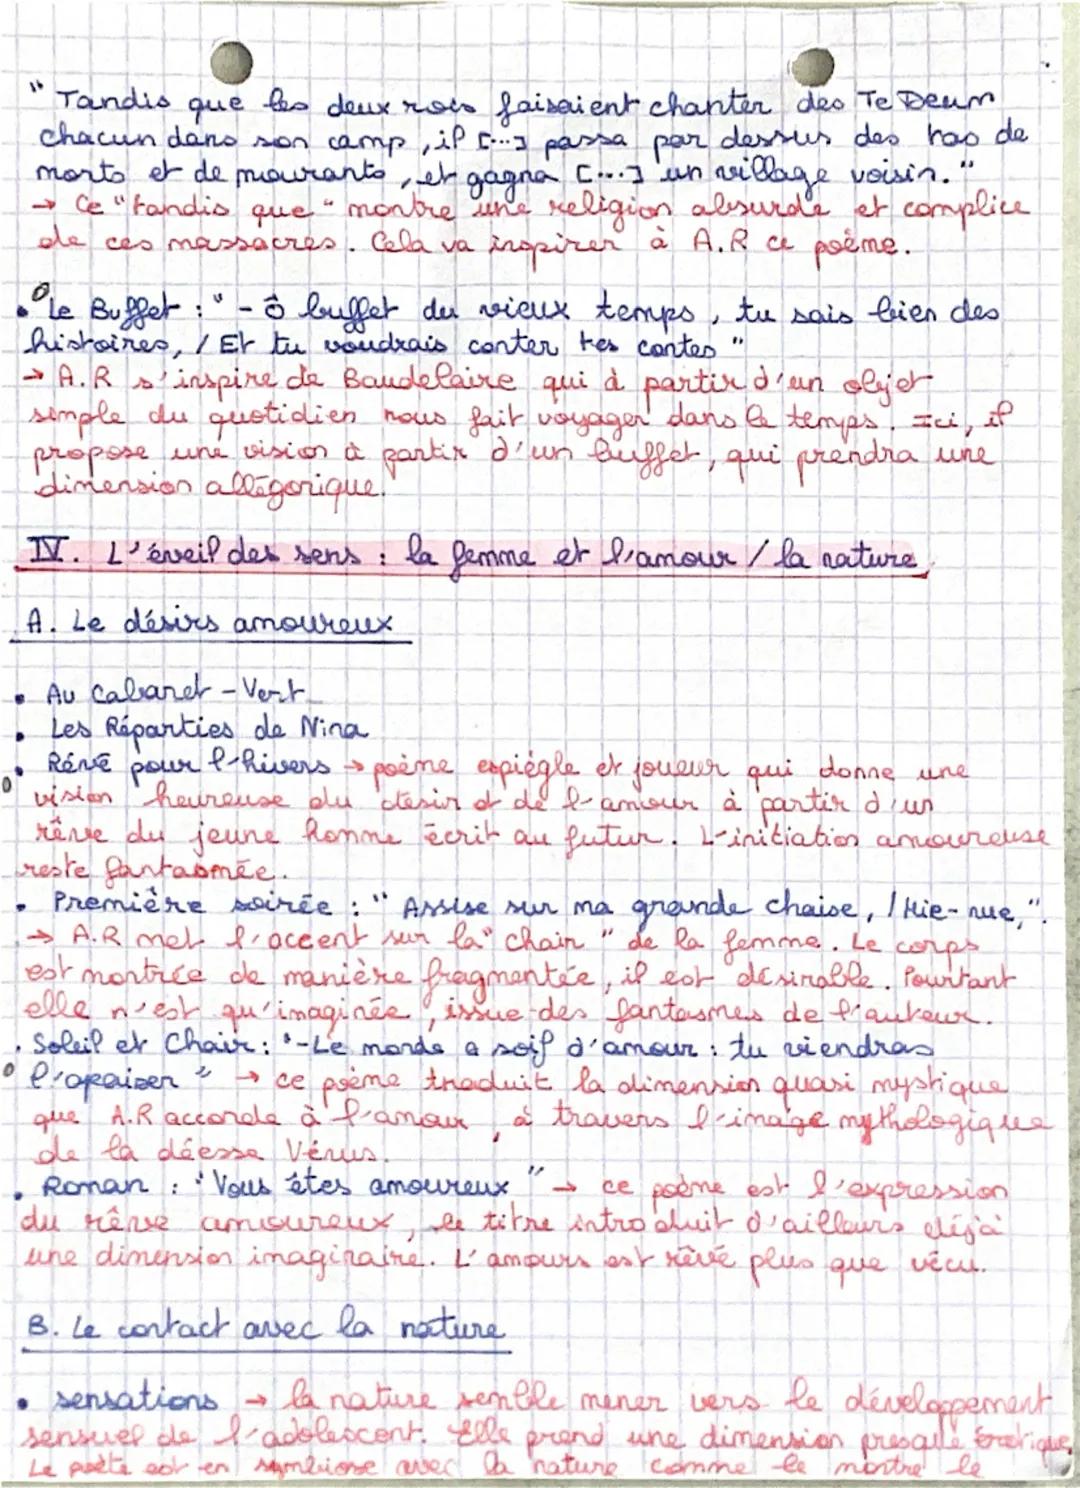 " Tandis que les deux rois faisaient chanter des Te Deum
chacun dans son camp, il [...] passa par dessus des tas de
morts et de mourants, et gagna [...] un village voisin. "
→ Ce "tandis que" montre une religion absurde et complice
de ces massacres. Cela va inspirer à A.R ce poème.
• Le Buffet : " - Ô buffet du vieux temps, tu sais bien des
histoires, / Et tu voudrais conter tes contes "
→ A.R s'inspire de Baudelaire qui à partir d'un objet
simple du quotidien nous fait voyager dans le temps. Ici, il
propose une vision à partir d'un buffet, qui prendra une
dimension allégorique.
IV. L'éveil des sens : la femme et l'amour / la nature
A. Le désirs amoureux
• Au Cabaret - Vert
• Les Réparties de Nina
• Rêvé pour l'hivers → poème espiègle et joueur qui donne une
vision heureuse du desir et de l'amour à partir d'un
rêve du jeune homme écrit au futur. L'initiation amoureuse
reste fantasmée.
• Première soirée : " Assise sur ma grande chaise, / Mie-nue, ".
→ A.R met l'accent sur la "chair" de la femme. Le corps
est montrée de manière fragmentée, il est désirable. Pourtant
elle n'est qu'imaginée, issue des fantasmes de l'auteur.
• Soleil et Chair : "-Le monde a soif d'amour : tu viendras
l'apaiser " → ce poème traduit la dimension quasi mystique
que A.R accorde à l'amour, à travers l'image mythologique
de la déesse Vénus.
• Roman : "Vous êtes amoureux " → ce poème est l'expression
du rêve amoureux, le titre introduit d'ailleurs déjà
une dimension imaginaire. L'amours est rêvé plus que vécu.
B. Le contact avec la nature
• sensations → la nature semble mener vers le développement
sensuel de l'adolescent. Elle prend une dimension presque érotique
Le poète est en symbiose avec la nature comme le montre le